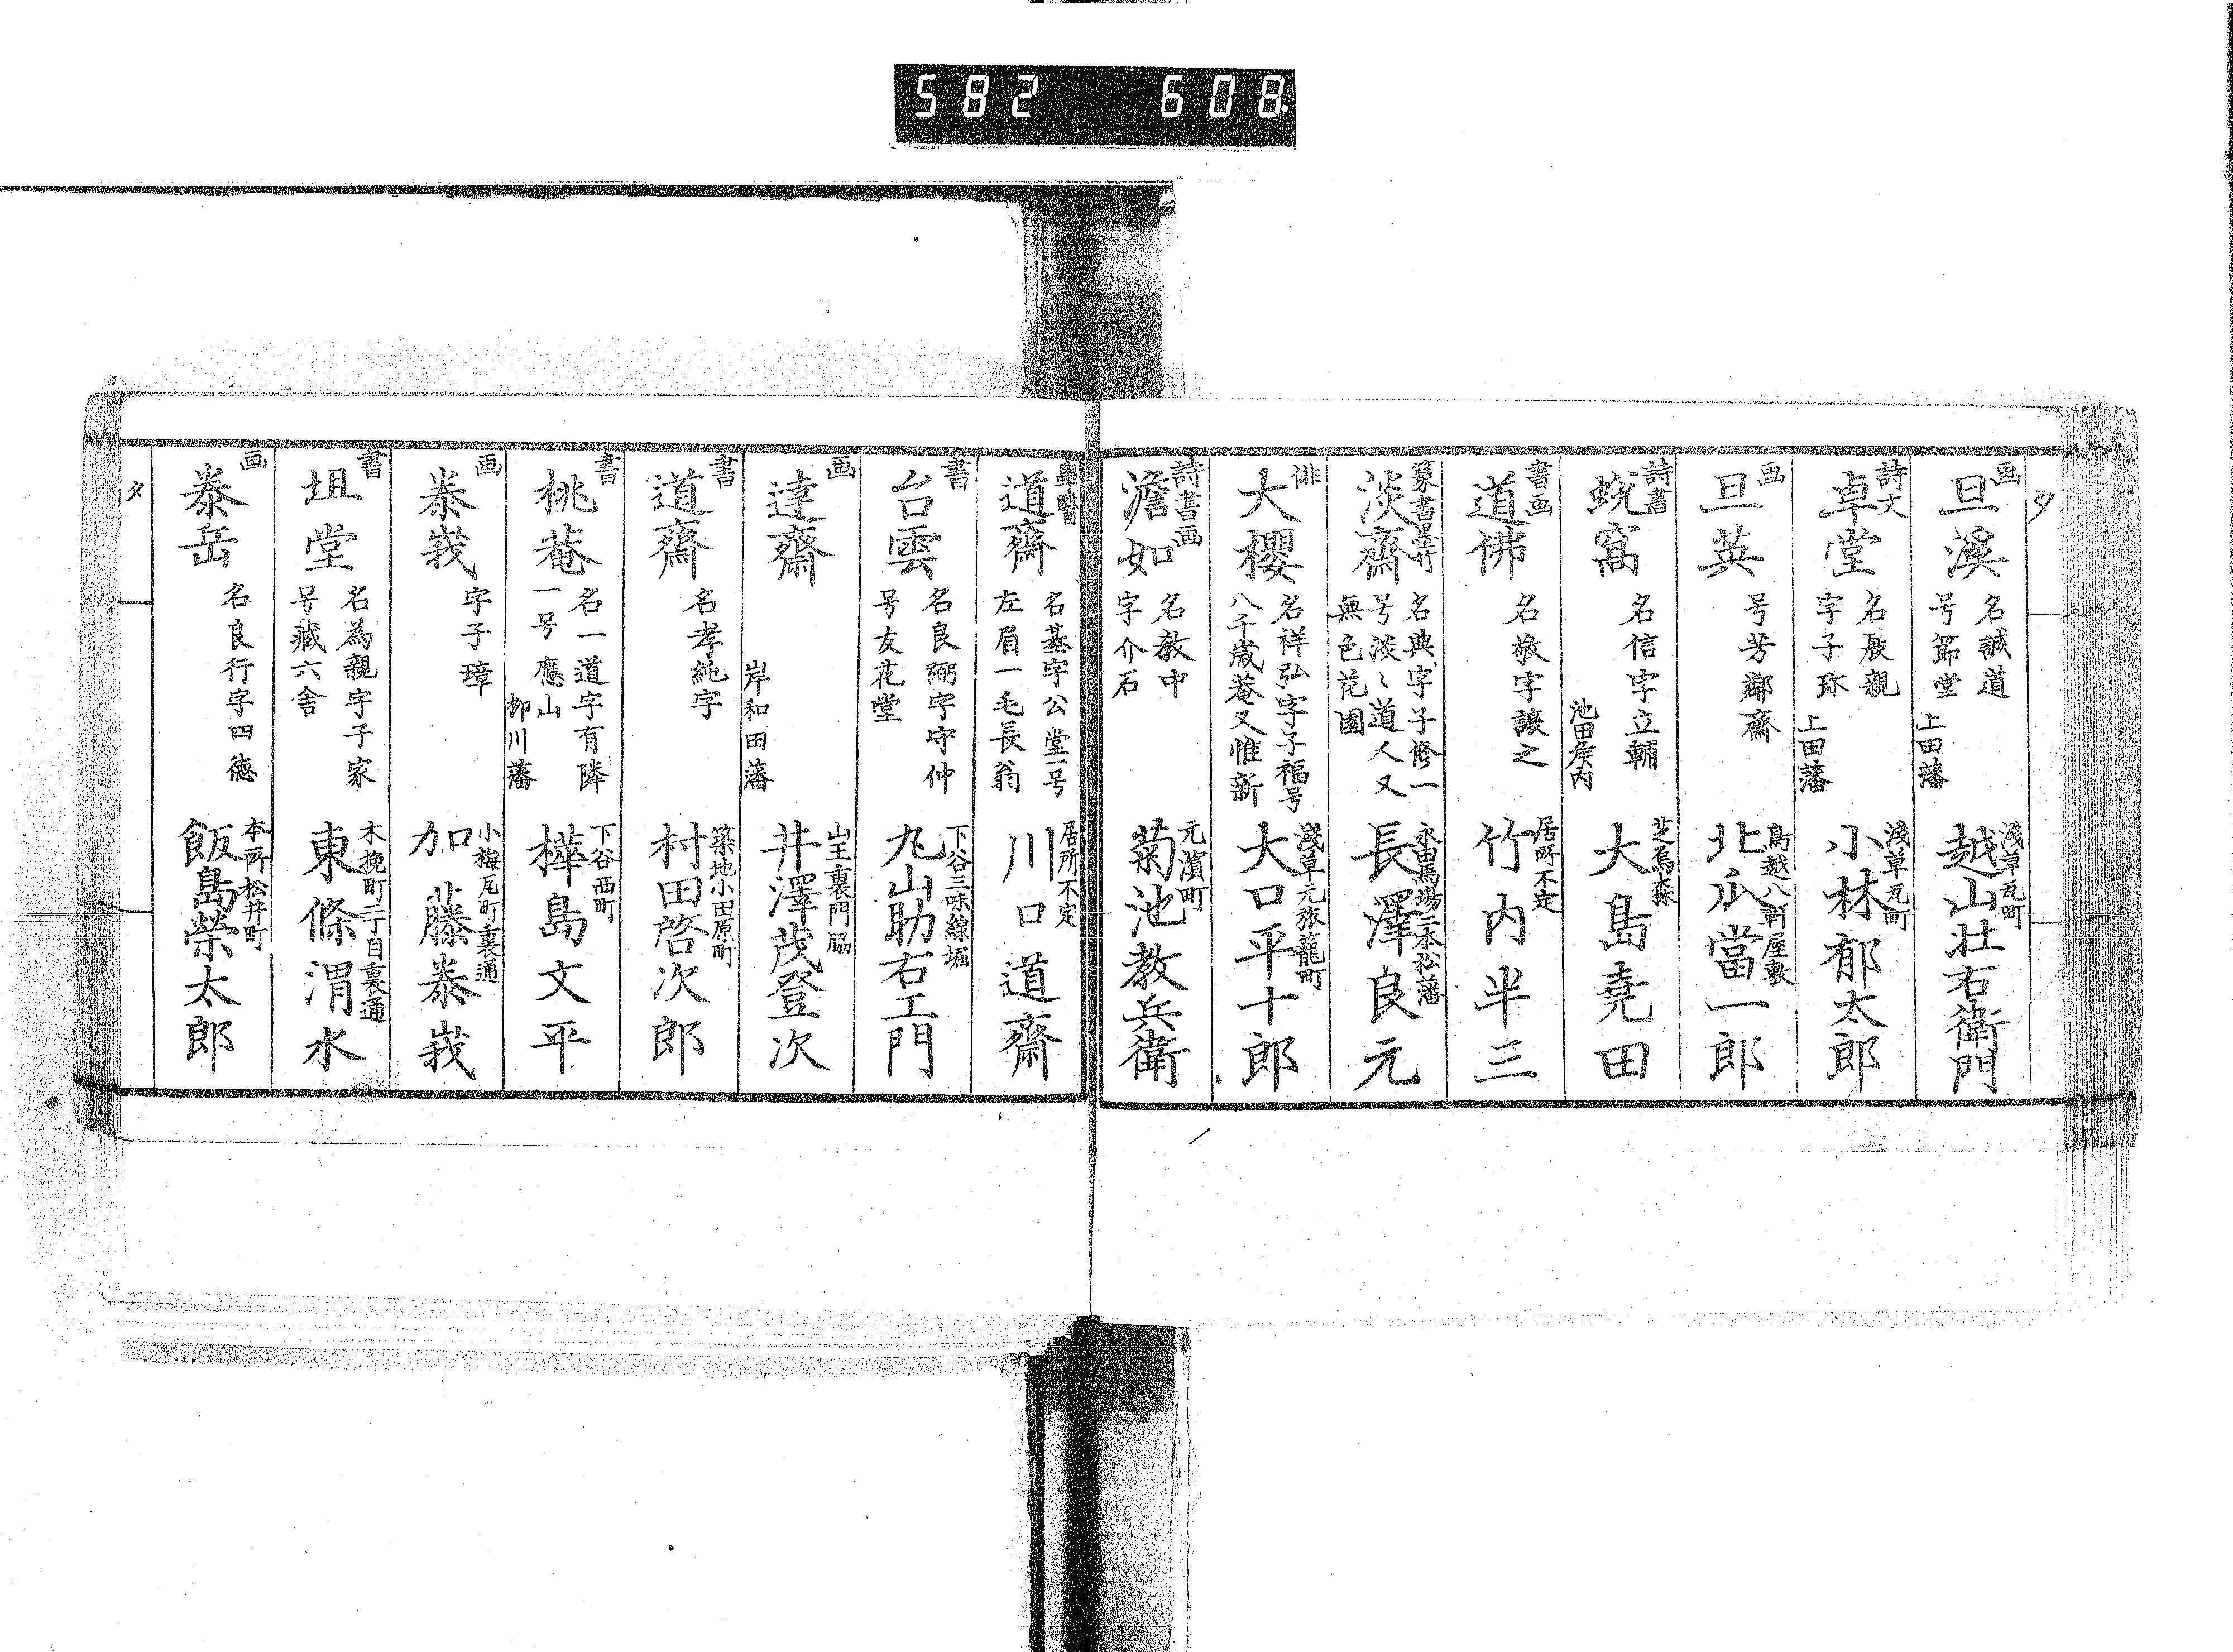 582 608
タ
画
旦溪
名誠道
号節堂
上田藩
淺草瓦町
越山壯右衛門
詩文
卓堂
名展親
字子珎
上田藩
淺草瓦町
小林郁太郎
画
旦英
号芳鄰齋
鳥越八軒屋敷
北爪當一郎
詩書
蛻窩
名信字立輔
池田矦内
芝烏森
大島堯田
書画
道佛
名敬字讓之
居所不定
竹内半三
篆書墨竹
淡齋
名典字子修一
号淡〻道人又
無色花園
永田馬場二本松藩
長澤良元
俳
大櫻
名祥弘字子福号
八千歳菴又惟新
淺草元旅籠町
大口平十郎
詩書画
澹如
名教中
字介石
元濵町
菊池教兵衛
道齋
名基字公堂一号
左眉一毛長翁
居所不定
川口道齋
書
台雲
名良弼字守仲
号友花堂
下谷三味線堀
丸山助右エ門
画
達齋
岸和田藩
山王裏門脇
井澤茂登次
書
道齋
名孝純字
築地小田原町
村田啓次郎
書
桃菴
名一道字有隣
一号應山
柳川藩
下谷西町
樺島文平
画
泰峩
字子璋
小梅瓦町裏通
加藤泰峩
書
坦堂
名為親字子家
号藏六舎
木挽町二丁目裏通
東條渭水
画
泰岳
名良行字四德
本所松井町
飯島榮太郎
タ